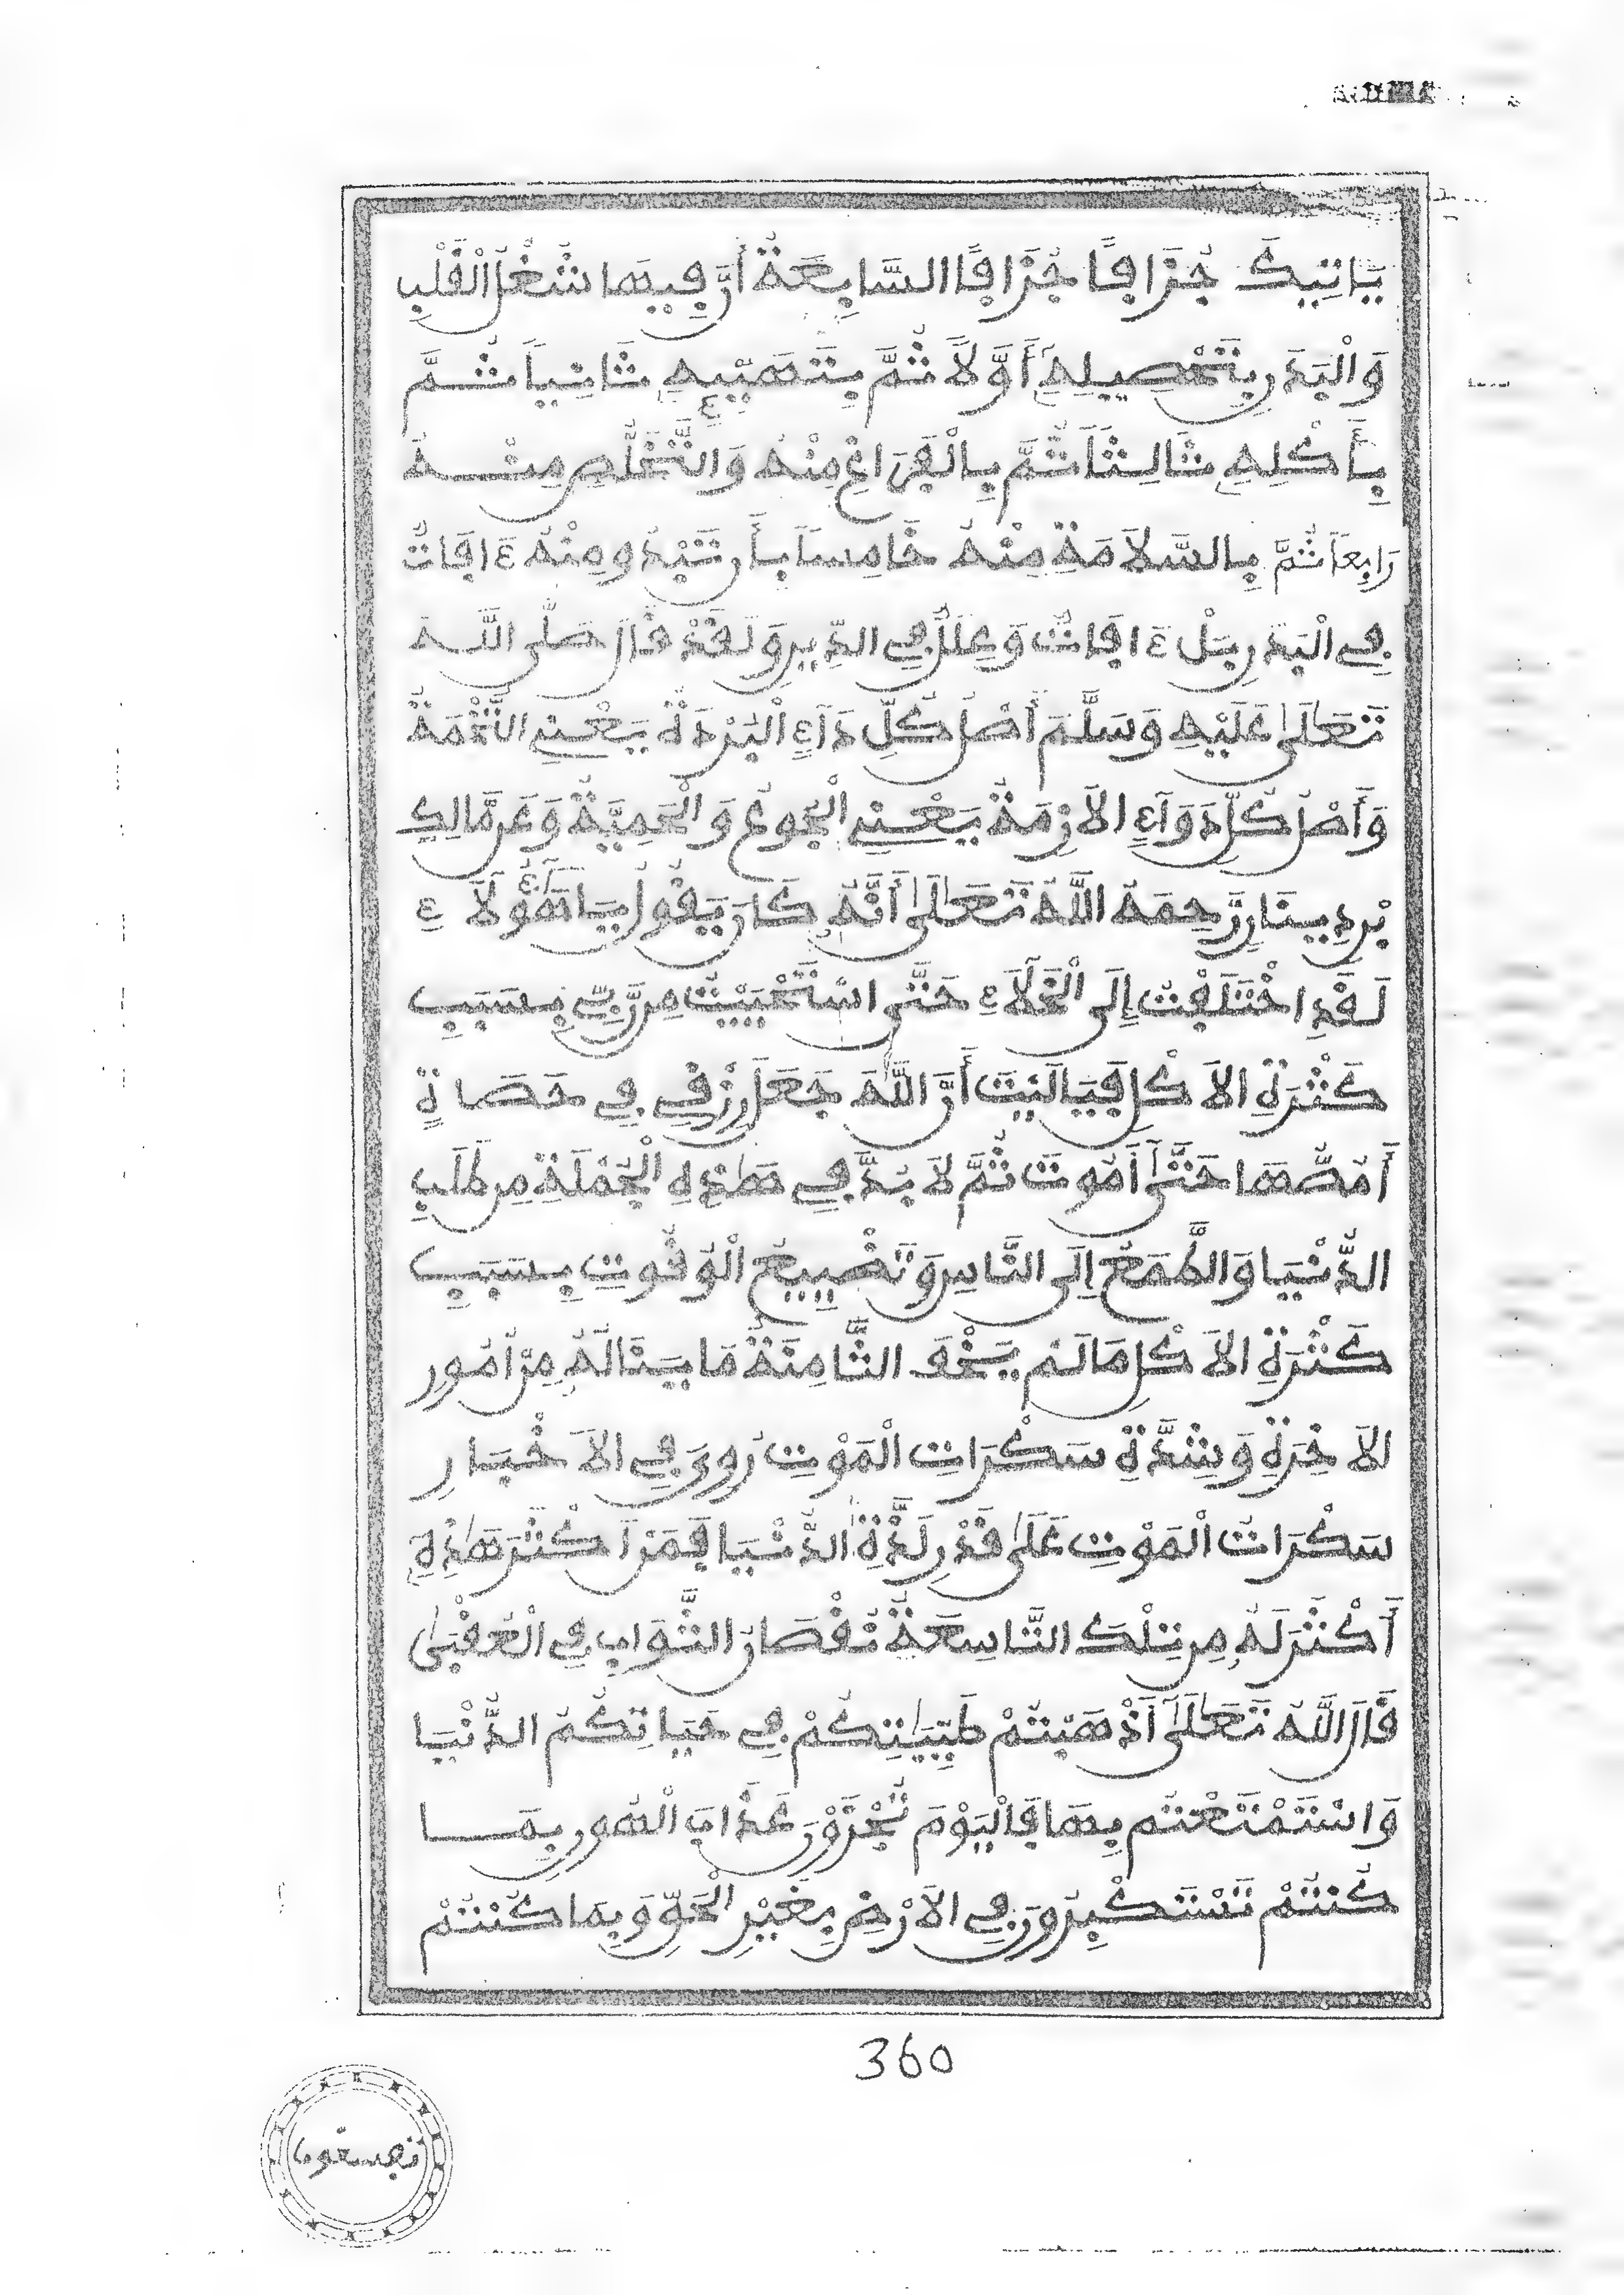 يَاتِيكَ جُزَافًا جُزَافًا السَّابِعَةُ أَنَّ فِيهَا شُغْلَ الْقَلْبِ
وَالْبَدَنِ بِتَحْصِيلِهِ أَوَّلاً ثُمَّ بِتَهَيِّيهِ ثَانِياً ثُمَّ
بِأَكْلِهِ ثَالِثاً ثُمَّ بِالْفَرَاغِ مِنْهُ وَالتَّخَلُّصِ مِنْهُ
رَابِعاً ثُمَّ بِالسَّلَامَةِ مِنْهُ خَامِساً بِأَن تَبْدُو مِنْهُ ءَافَاتٌ
فِي الْبَدَنِ بَلْ ءَافَاتٌ وَعِلَلٌ فِي الدِّينِ وَلَقَدْ قَالَ صَلَّى اللَّهُ
تَعَالَى عَلَيْهِ وَسَلَّمَ أَصْلُ كُلِّ دَآءٍ الْبَرْدَةُ يَعْنِي التُّخْمَةُ
وَأَصْلُ كُلِّ دَوَآءٍ الَازْمَةُ يَعْنِي الْجُوعُ وَالْحَمِيَّةُ وَعَن مَّالِكِ
بْنِ دِينَارٍ رَّحِمَهُ اللَّهُ تَعَالَى أَنَّهُ كَانَ يَقُولُ يَا هَؤُلَاءِ
لَقَدِ اخْتَلَفْتُ إِلَى الْخَلَاءِ حَتَّى اسْتَحْيَيْتُ مِن رَّبِّي بِسَبَبِ
كَثْرَةِ الَاكْلِ فَيَا لَيْتَ أَنَّ اللَّهَ جَعَلَ رِزْقِي فِي حَصَاةٍ
أَمَصُّهَا حَتَّى أَمُوتَ ثُمَّ لَا بُدَّ فِي هَذِهِ الْجُمْلَةِ مِن طَلَبِ
الدُّنْيَا وَالطَّمَعِ إِلَى النَّاسِ وَتَضْيِيعِ الْوُقُوتِ بِسَبَبِ
كَثْرَةِ الَاكْلِ مَا لَمْ يَخْفَ الثَّامِنَةُ مَا يَنَالُهُ مِنْ أُمُورِ
الَاخِرَةِ وَشِدَّةِ سَكْرَاتِ الْمَوْتِ رُوِيَ فِي الَاخْبَارِ
سَكْرَاتُ الْمَوْتِ عَلَى قَدْرِ لَذَّةِ الدُّنْيَا فَمَنْ أَكْثَرَ هَذِهِ
أَكْثَرَ لَهُ مِن تِلْكَ التَّاسِعَةُ نُقْصَانُ الثَّوَابِ فِي الْعُقْبَى
قَالَ اللَّهُ تَعَالَى أَذْهَبْتُمْ طَيِّبَاتِكُمْ فِي حَيَاتِكُمُ الدُّنْيَا
وَاسْتَمْتَعْتُم بِهَا فَالْيَوْمَ تُجْزَوْنَ عَذَابَ الْهُونِ بِمَا
كُنتُمْ تَسْتَكْبِرُونَ فِي الَارْضِ بِغَيْرِ الْحَقِّ وَبِمَا كُنتُمْ
360